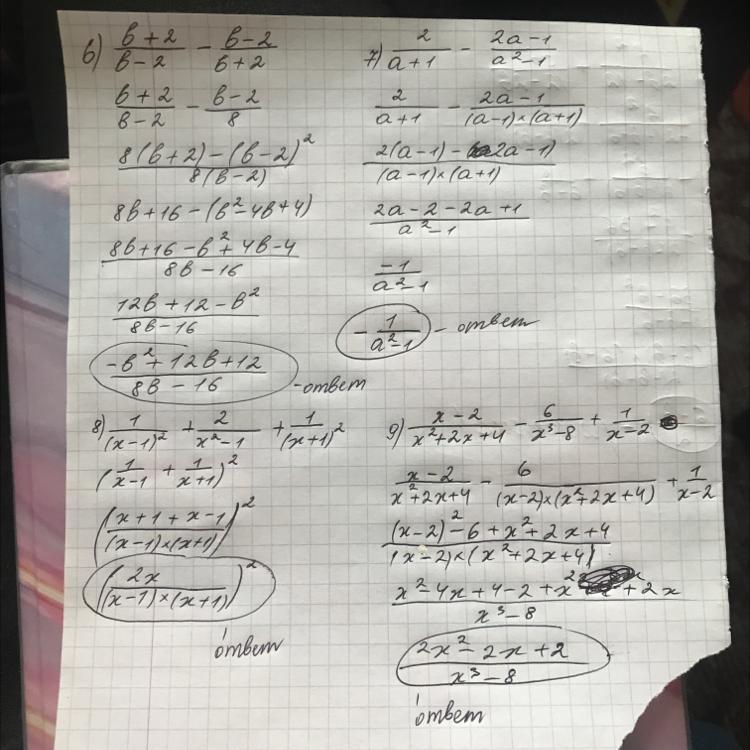 6) (в+2)/(в-2) - (в-2)/(6+2)
(в+2)/(в-2) - (в-2)/8
(8(в+2)-(в-2)²)/(8(в-2))
8в+16-(в²-4в+4)
(8в+16-в²+4в-4)/(8в-16)
(12в+12-в²)/(8в-16)
(-в²+12в+12)/(8в-16) -ответ
7) 2/(a+1) - (2a-1)/(a²-1)
2/(a+1) - (2a-1)/((a-1)×(a+1))
(2(a-1)-(2a-1))/((a-1)×(a+1))
(2a-2-2a+1)/(a²-1)
-1/(a²-1)
-1/(a²-1) - ответ
8) 1/(x-1)² + 2/(x²-1) + 1/(x+1)²
(1/(x-1) + 1/(x+1))²
((x+1+x-1)/((x-1)×(x+1)))²
(2x/((x-1)×(x+1)))²
ответ
9) (x-2)/(x²+2x+4) - 6/(x³-8) + 1/(x-2)
(x-2)/(x²+2x+4) - 6/((x-2)×(x²+2x+4)) + 1/(x-2)
((x-2)²-6+x²+2x+4)/((x-2)×(x²+2x+4))
(x²-4x+4-2+x²+2x)/(x³-8)
(2x²-2x+2)/(x³-8)
ответ